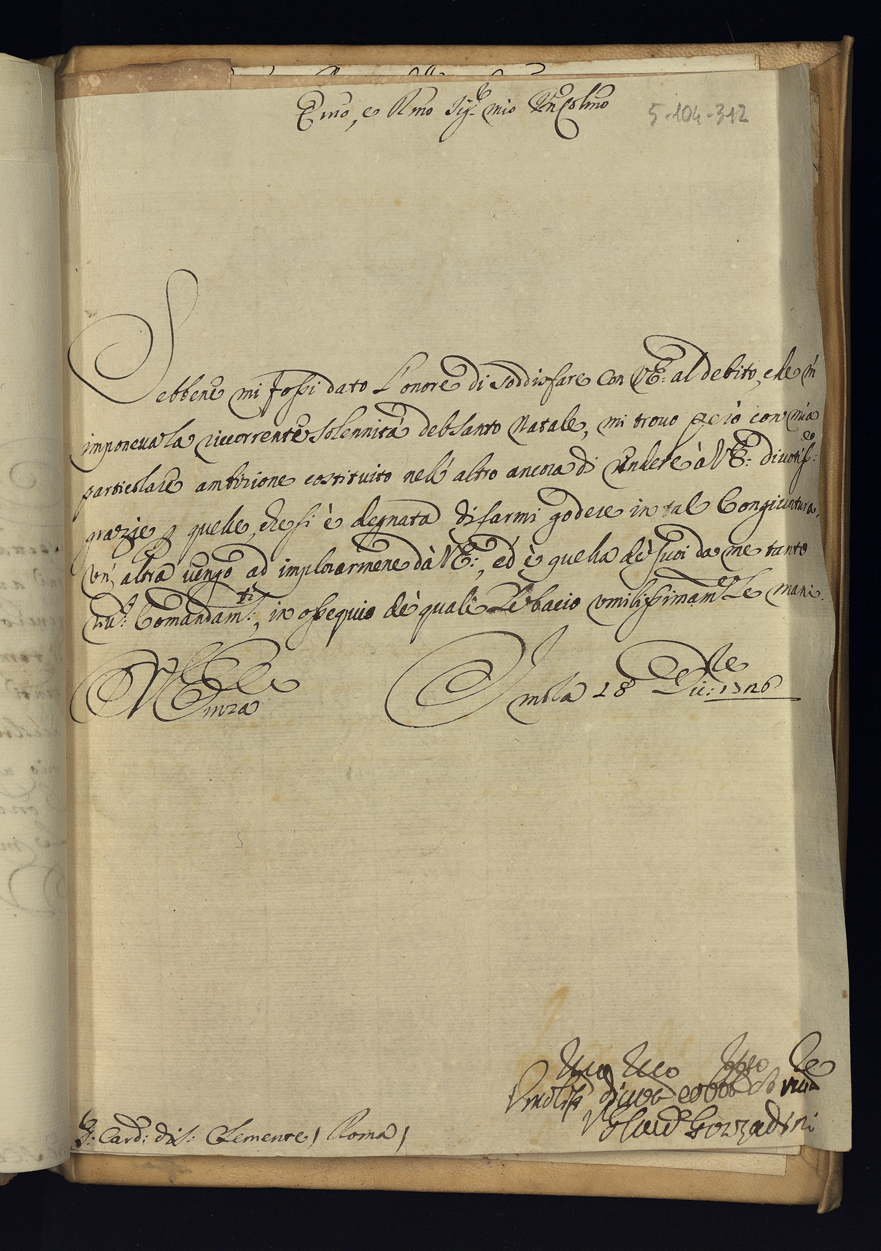 Emo, e Rmo Sig.re mio Pron Colmo
5-104-312
Sebbene mi fossi dato L'onore di soddisfare con VE: al debito, che m'
imponeva la ricorrente Solennità del Santo Natale, mi trovo però con mia
particolare ambizione costituito nell'altro ancora di rendere à VE: divotiss:e
grazie p quelle, che si è degnata di farmi godere in tal Congiuntura.
Un'altra vengo ad implorarmene dà VE:, ed è quella dè suoi da me tanto
Comandam:ti, in ossequio dè quali Le bacio umilissimam:te Le mani.
VE
Imola 28 Dic:re 1726
S: Card: di S: Clemente / Roma /
Umiliss
Gozzadini